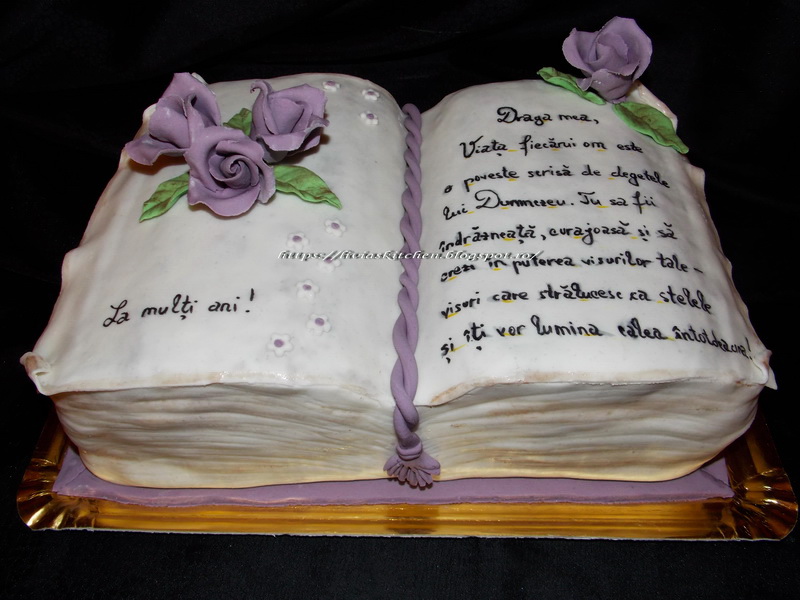 La mulți ani!
Draga mea,
Viața fiecărui om este
o poveste scrisă de degetele
lui Dumnezeu. Tu să fii
îndrăzneață, curajoasă și să
crezi în puterea visurilor tale -
visuri care strălucesc ca stelele
și îți vor lumina calea întotdeauna!